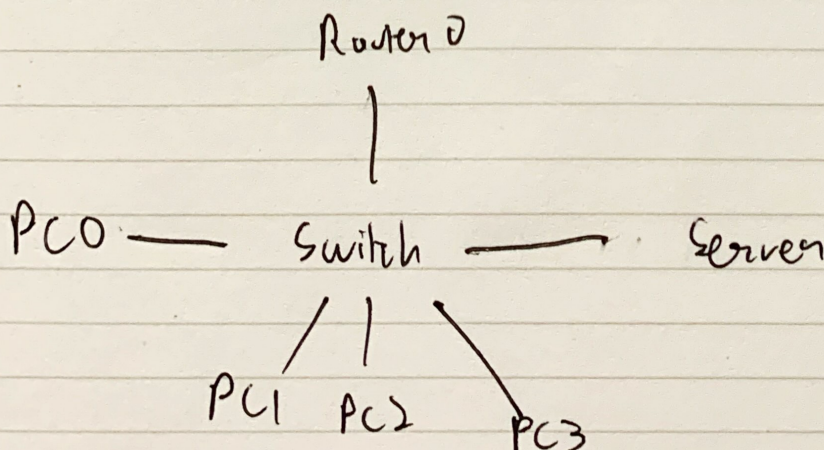 Router 0
PC0 Switch Server
PC1 PC2 PC3